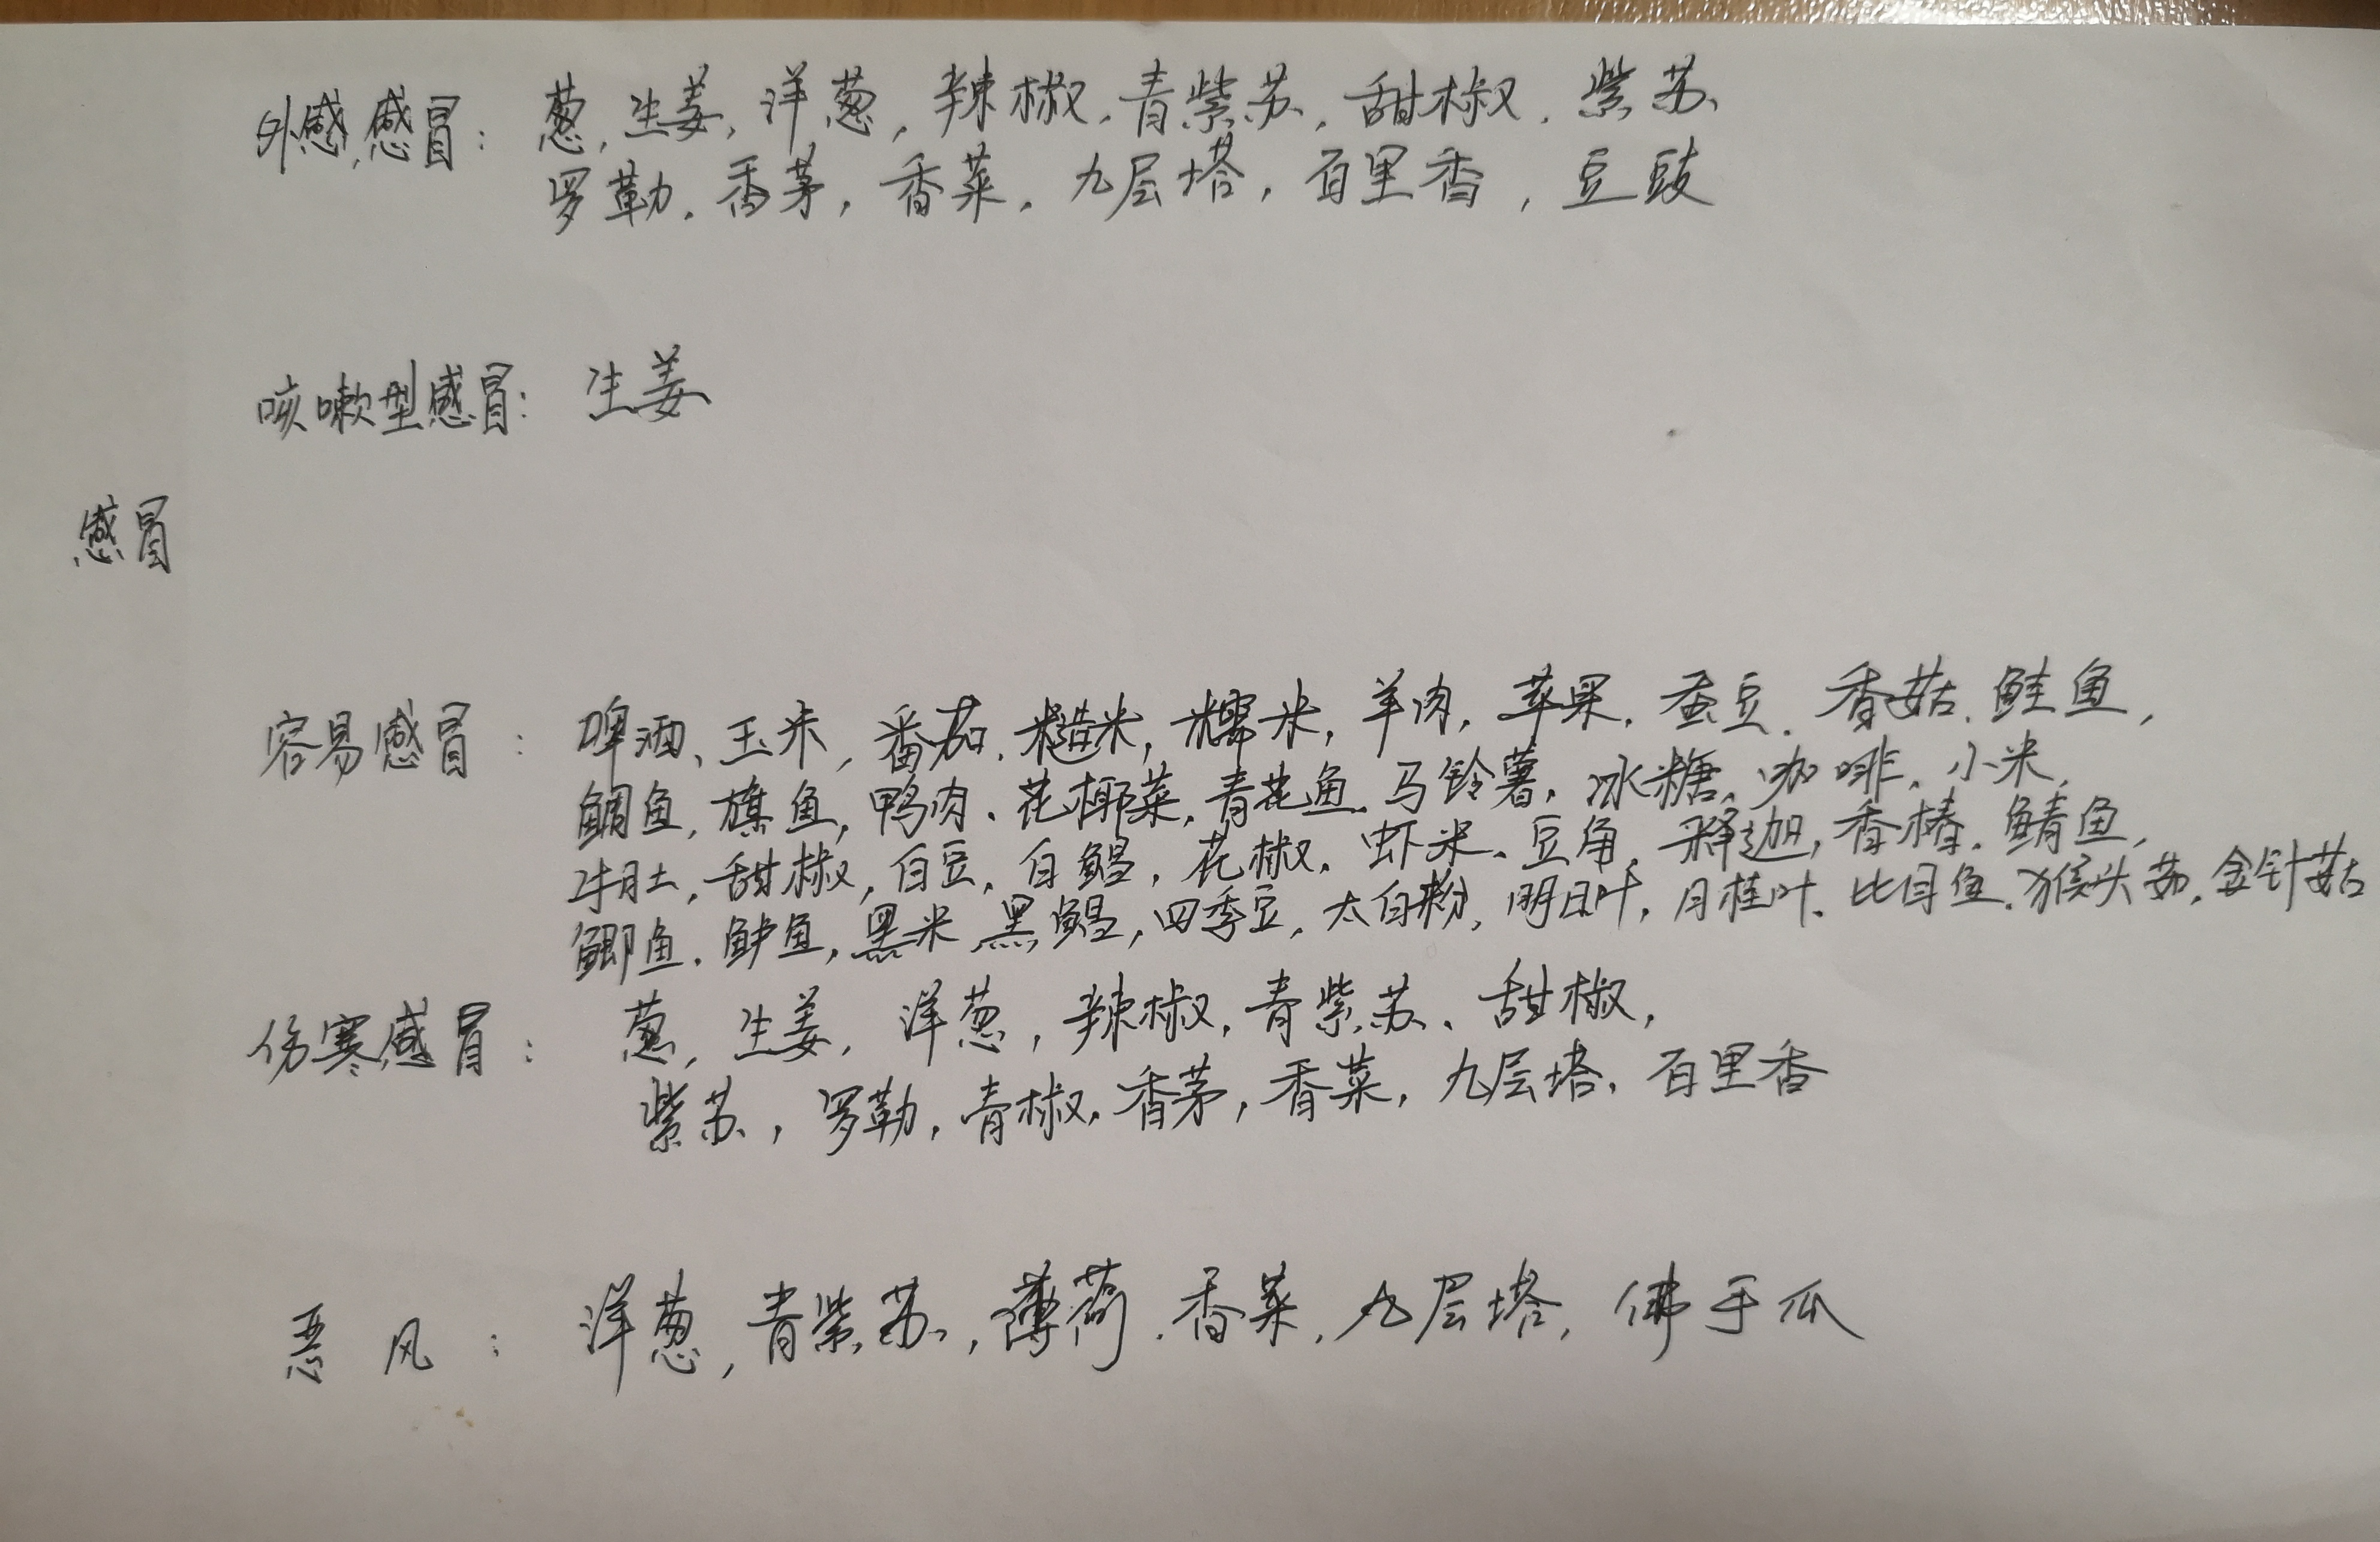 外感感冒：葱，生姜，洋葱，辣椒，青紫苏，甜椒，紫苏、
罗勒，香茅，香菜，九层塔，百里香，豆豉
咳嗽型感冒：生姜
感冒
容易感冒：啤酒、玉米，番茄，糙米，糯米，羊肉，苹果，蚕豆，香菇，鲑鱼，
鲷鱼，旗鱼，鸭肉、花椰菜，青花鱼，马铃薯，冰糖，咖啡，小米，
牛肚，甜椒，白豆，白鲳，花椒，虾米、豆角，释迦，香椿，鲭鱼，
鲫鱼，鲈鱼，黑米，黑鲳，四季豆，太白粉，明日叶，月桂叶、比目鱼，猴头菇，金针菇
伤寒感冒：葱，生姜，洋葱，辣椒，青紫苏、甜椒，
紫苏，罗勒，青椒，香茅，香菜，九层塔，百里香
恶风：洋葱，青紫苏，薄荷，香菜，九层塔，佛手瓜